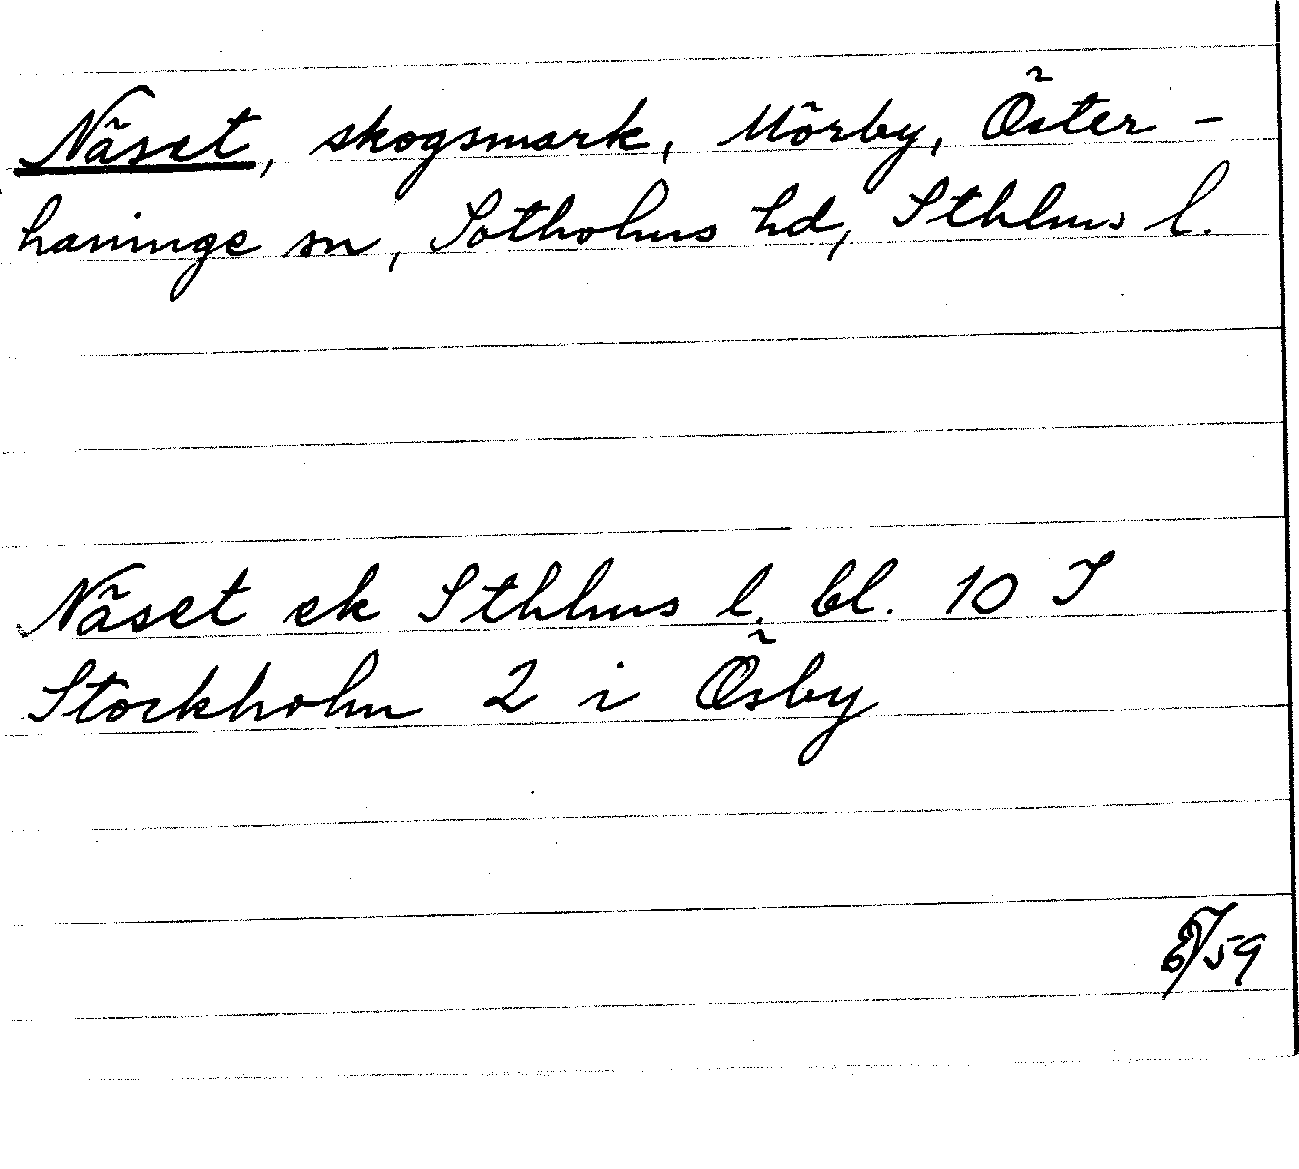 Näset, skogsmark, Mörby, Öster-
haninge sn, Sotholms hd, Sthlms l.
Näset ek Sthlms l. bl. 10 I
Stockholm 2 i Ösby
/59